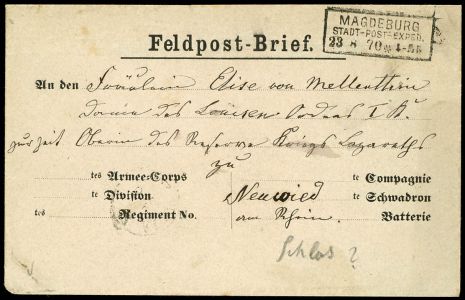 MAGDEBURG
STADT-POST-EXPED.
23 8 70 4-5N
Feldpost-Brief.
An den Fräulein Elise von Mellenthin
Dame des Louisen Ordens I Kl.
zur Zeit Oberin des Reserve Königs Lazareths
zu
tes Armee-Corps te Compagnie
te Division Neuwied te Schwadron
tes Regiment No. am Rhein. Batterie
Schloss?